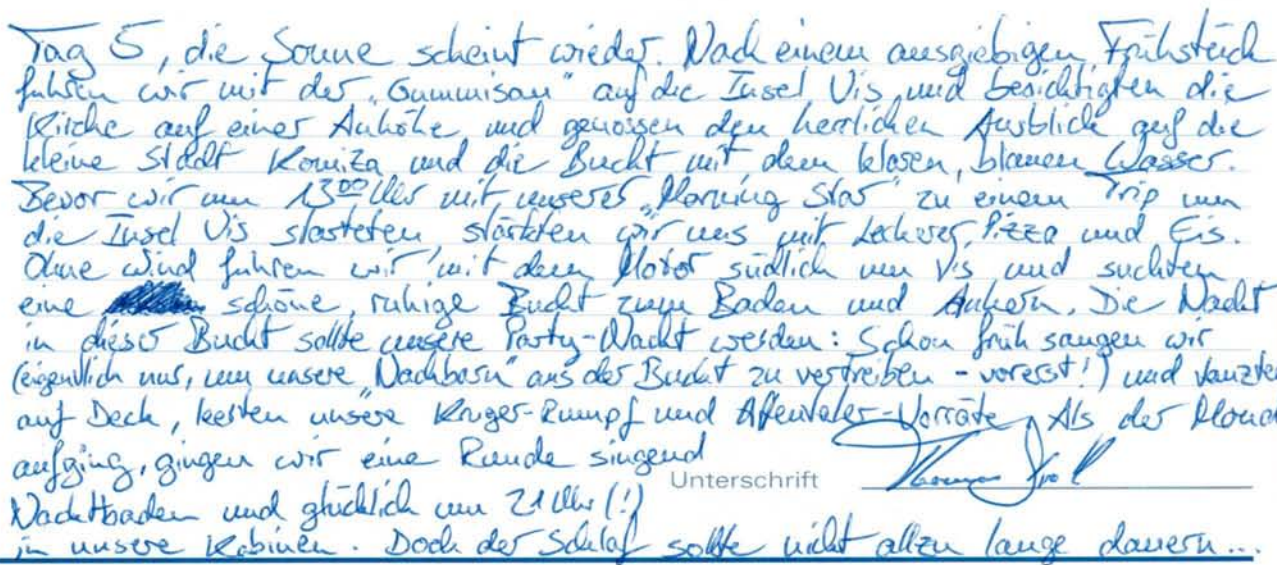 Tag 5, die Sonne scheint wieder. Nach einem ausgiebigen Frühstück
fuhren wir mit der „Gummisau" auf die Insel Vis und besichtigten die
Kirche auf einer Anhöhe und genossen den herrlichen Ausblick auf die
kleine Stadt Komiza und die Bucht mit dem klaren, blauen Wasser.
Bevor wir um 13⁰⁰ Uhr mit unserer „Morning Star" zu einem Trip um
die Insel Vis starteten, stärkten wir uns mit leckerer Pizza und Eis.
Ohne Wind fuhren wir mit dem Motor südlich um Vis und suchten
eine schöne, ruhige Bucht zum Baden und Ankern. Die Nacht
in dieser Bucht sollte unsere Party-Nacht werden: Schon früh sangen wir
(eigentlich nur, um unsere „Nachbarn" aus der Bucht zu vertreiben - vorerst!) und tanzten
auf Deck, leerten unsere Kruger-Rumpf und Affentaler-Vorräte. Als der Mond
aufging, gingen wir eine Runde singend
Unterschrift
Nacktbaden und glücklich um 21 Uhr (!)
in unsere Kabinen. Doch der Schlaf sollte nicht allzu lange dauern...